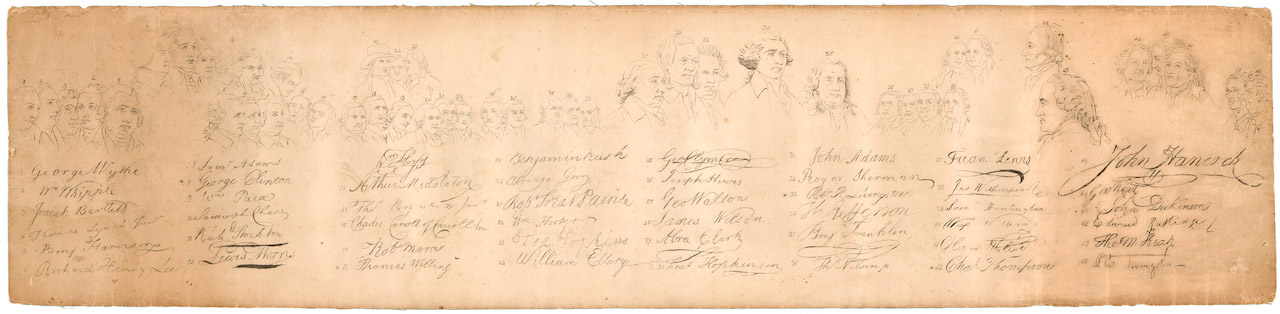 George Wythe
Wm Whipple
Josiah Bartlett
Thomas Lynch Junr
Benj Harrison
Richard Henry Lee
Saml Adams
George Clinton
Wm Paca
Samuel Chase
Richd Stockton
Lewis Morris
Wm Floyd
Arthur Middleton
Thos Heyward Junr
Charles Carroll of Carrollton
Robt Morris
Thomas Willing
Benjamin Rush
Elbridge Gerry
Robt Treat Paine
Wm Hooper
Step Hopkins
William Ellery
Geo Clymer
Joseph Hewes
Geo Walton
James Wilson
Abra Clark
Fras Hopkinson
John Adams
Roger Sherman
Rob R Livingston
Th Jefferson
Benj Franklin
Ths Nelson
Fran Lewis
Jno Witherspoon
Saml Huntington
Wm
Oliver Wolcott
Chas Thompson
John Hancock
Geo Read
John Dickinson
Edward Rutledge
Tho M Kean
Livingston